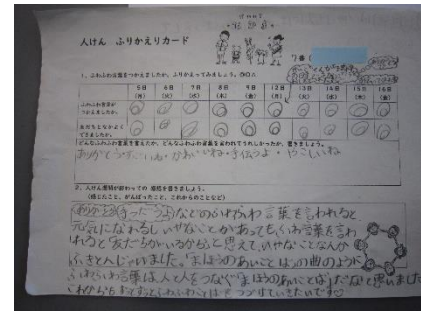 人けん ふりかえりカード
7番
1、ふわふわ言葉をつかえましたか。ふりかえってみましょう。◎○△
5日 6日 7日 8日 9日 12日 13日 14日 15日 16日
(月) (火) (水) (木) (金) (月) (火) (水) (木) (金)
ふわふわ言葉が
つかえましたか。
友だちとなかよく
できましたか。
どんなふわふわ言葉を言えたか、どんなふわふわ言葉を言われてうれしかったか、書きましょう。
ありがとう・すごいね・かわいいね・手伝うよ・やさしいね
2、人けん週間が終わっての感想を書きましょう。
(感じたこと、がんばったこと、これからのことなど)
などのふわふわ言葉を言われると
元気になれるし、いやなことがあっても、ふわふわ言葉を言わ
れると「友だちがいるから」と思えて、いやなことなんか
ふきとんじゃいました。「まほうのあいことば」の曲のように
ふわふわ言葉は、人と人をつなぐ「まほうのあいことば」だなと思いました。
これからもずっとずっとふわふわことばをつづけていきたいです♡